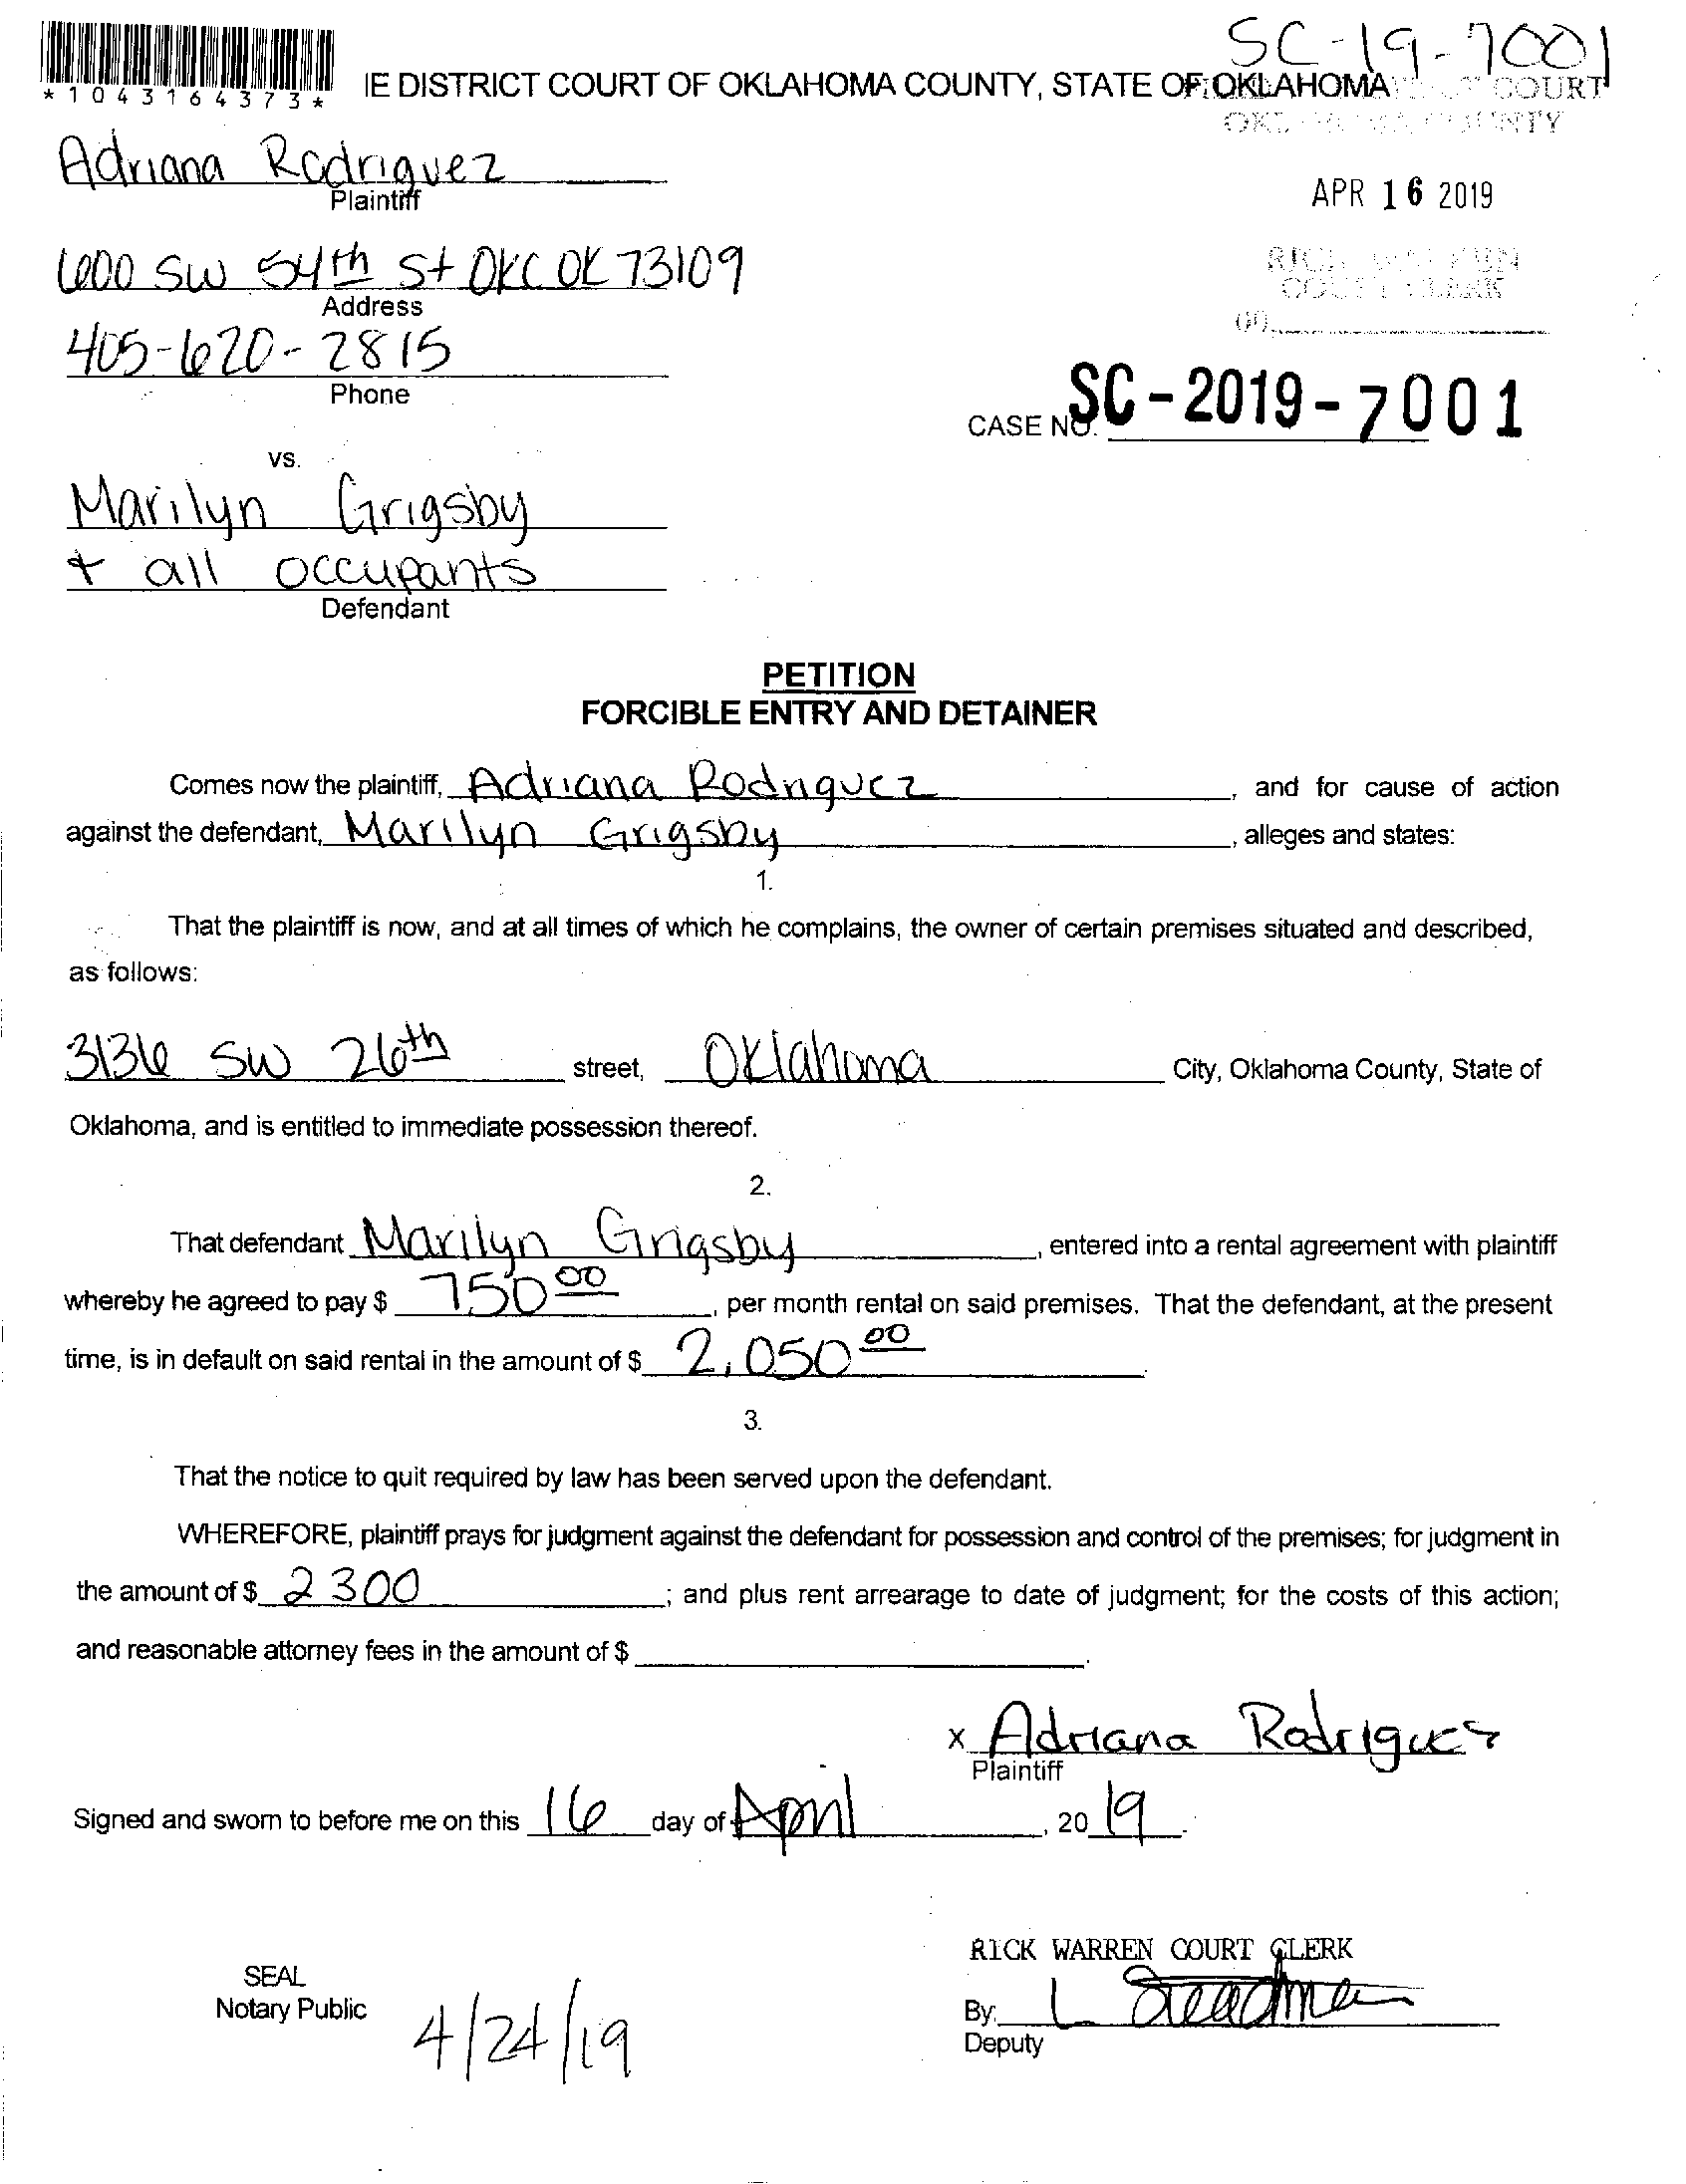 SC-19-7001
*1043164373*
IE DISTRICT COURT OF OKLAHOMA COUNTY, STATE OF OKLAHOMA
COURT
COUNTY
Adriana Rodriguez
Plaintiff
APR 16 2019
600 SW 54th St OKC OK 73109
Address
RICK WARREN
COURT CLERK
405-620-2815
Phone
CASE NO. SC-2019-7001
vs.
Marilyn Grigsby
+ all occupants
Defendant
PETITION
FORCIBLE ENTRY AND DETAINER
Comes now the plaintiff, Adriana Rodriguez, and for cause of action
against the defendant, Marilyn Grigsby, alleges and states:
1.
That the plaintiff is now, and at all times of which he complains, the owner of certain premises situated and described,
as follows:
3136 SW 26th street, Oklahoma City, Oklahoma County, State of
Oklahoma, and is entitled to immediate possession thereof.
2.
That defendant Marilyn Grigsby, entered into a rental agreement with plaintiff
whereby he agreed to pay $ 750 00, per month rental on said premises. That the defendant, at the present
time, is in default on said rental in the amount of $ 2,050 00.
3.
That the notice to quit required by law has been served upon the defendant.
WHEREFORE, plaintiff prays for judgment against the defendant for possession and control of the premises; for judgment in
the amount of $ 2300; and plus rent arrearage to date of judgment; for the costs of this action;
and reasonable attorney fees in the amount of $
x Adriana Rodriguez
Plaintiff
Signed and sworn to before me on this 16 day of April, 2019.
RICK WARREN COURT CLERK
SEAL
Notary Public
4/24/19
By. L Steadman
Deputy